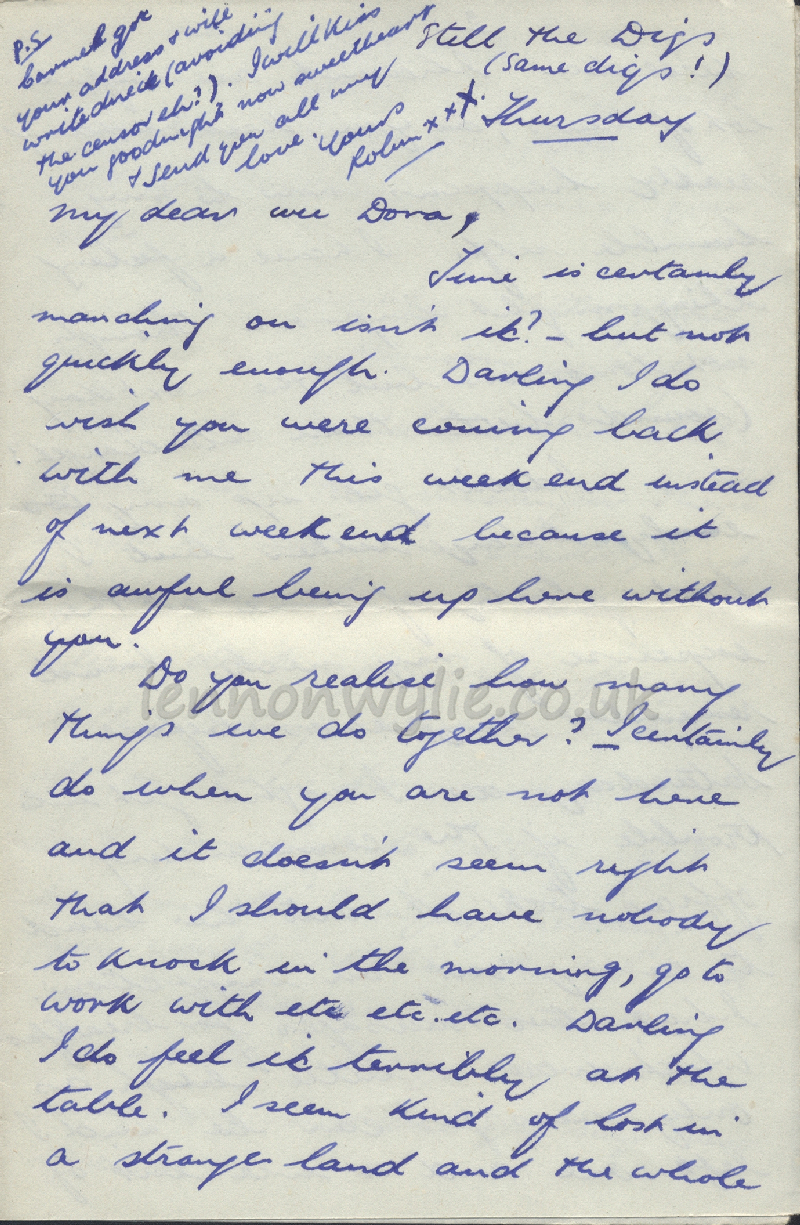 P.S
Carmel got
your address & will
write direct (avoiding
the censor eh?). I will kiss
you goodnight now sweetheart
& send you all my
love. Yours
Robin x x x
Still the Digs
(same digs!)
Thursday
My dear wee Dora,
Time is certainly
marching on isn't it? - but not
quickly enough. Darling I do
wish you were coming back
with me this week end instead
of next week end because it
is awful being up here without
you.
Do you realise how many
things we do together? I certainly
do when you are not here
and it doesn't seem right
that I should have nobody
to knock in the morning, go to
work with etc etc. etc. Darling
I do feel it terribly at the
table. I seem kind of lost in
a strange land and the whole
lennonwylie.co.uk